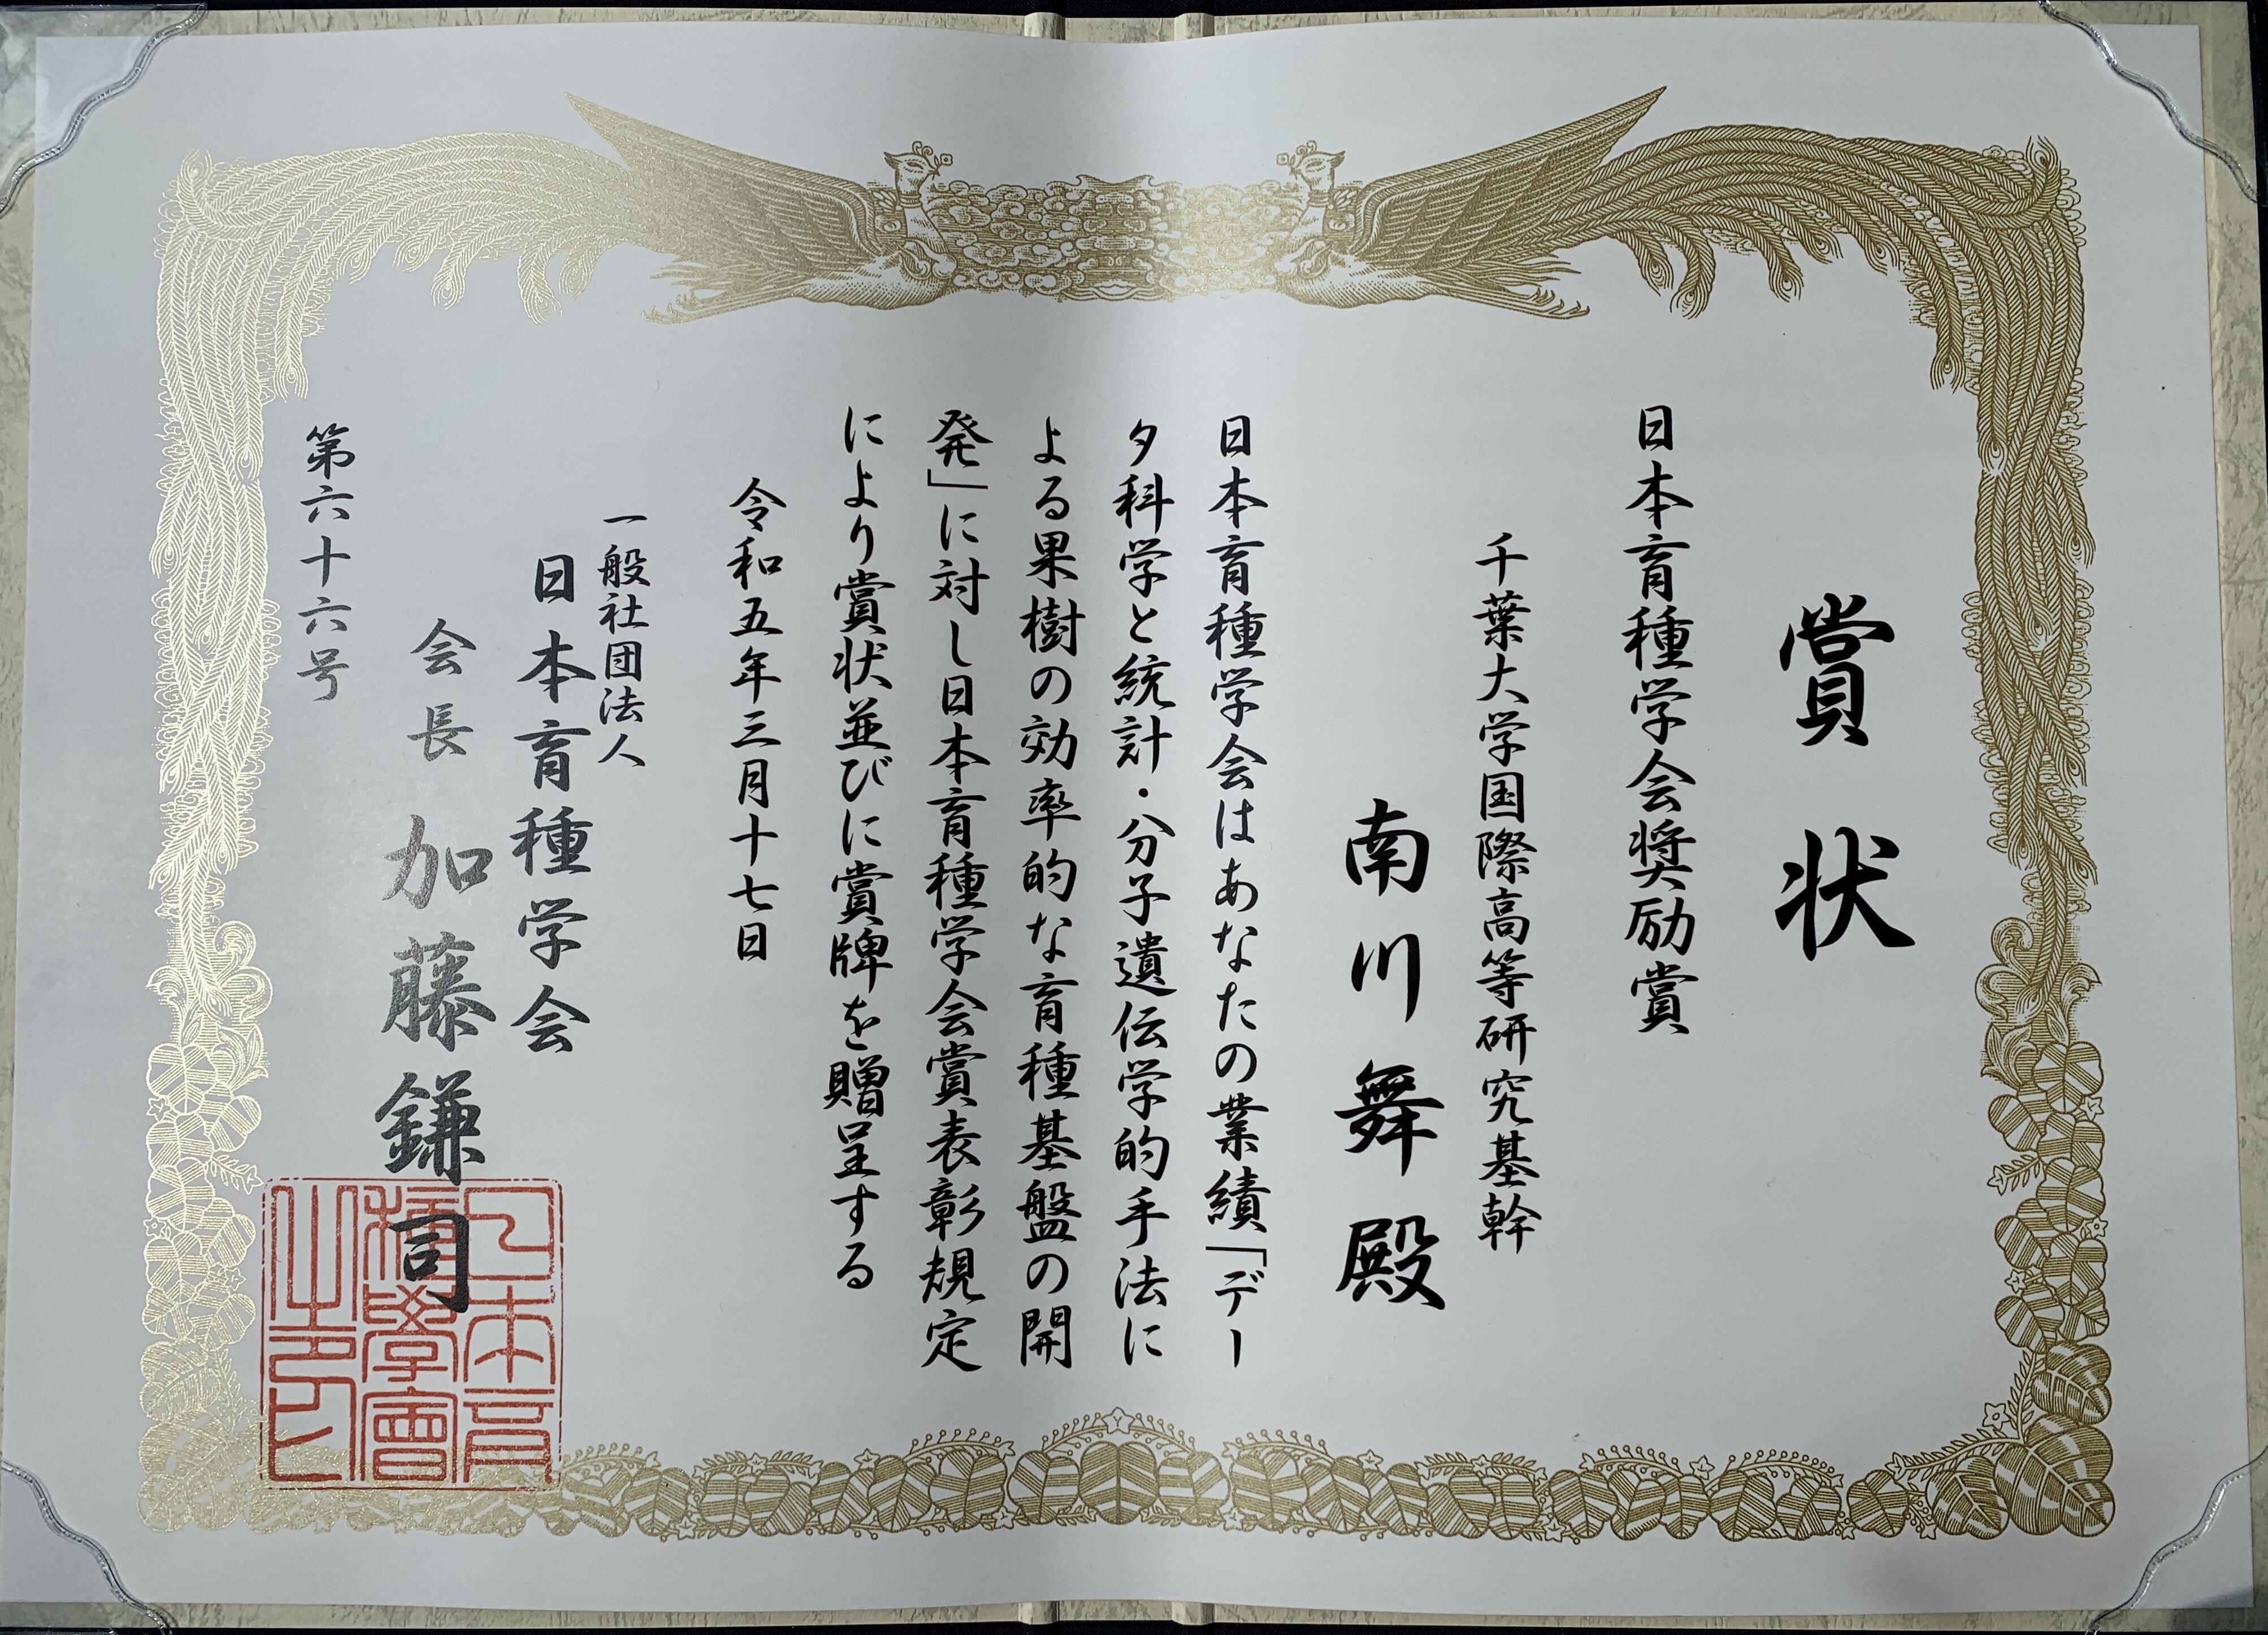 賞状
日本育種学会奨励賞
千葉大学国際高等研究基幹
南川舞殿
日本育種学会はあなたの業績「デー
タ科学と統計・分子遺伝学的手法に
よる果樹の効率的な育種基盤の開
発」に対し日本育種学会賞表彰規定
により賞状並びに賞牌を贈呈する
令和五年三月十七日
一般社団法人
日本育種学会
会長 加藤鎌司
第六十六号
日本育
種學會
之印